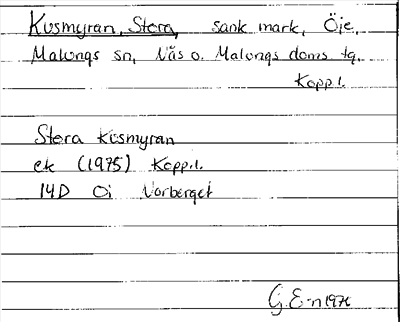 Kusmyran, Stora, sank mark, Öje,
Malungs sn, Nås o. Malungs doms tg.
Kopp.l.
Stora Kusmyran
ek (1975) Kopp.l.
14D Oi Norberget
G.E-n 1976